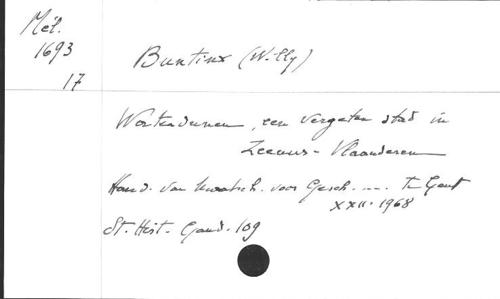 Mél.
1693
17
Buntinx (Willy)
Wastendunen, een vergeten stad in
Zeeuws-Vlaanderen
Hand. van Maatsch. voor Gesch. ... te Gent
XXII. 1968
St. Hist. Gand. 109